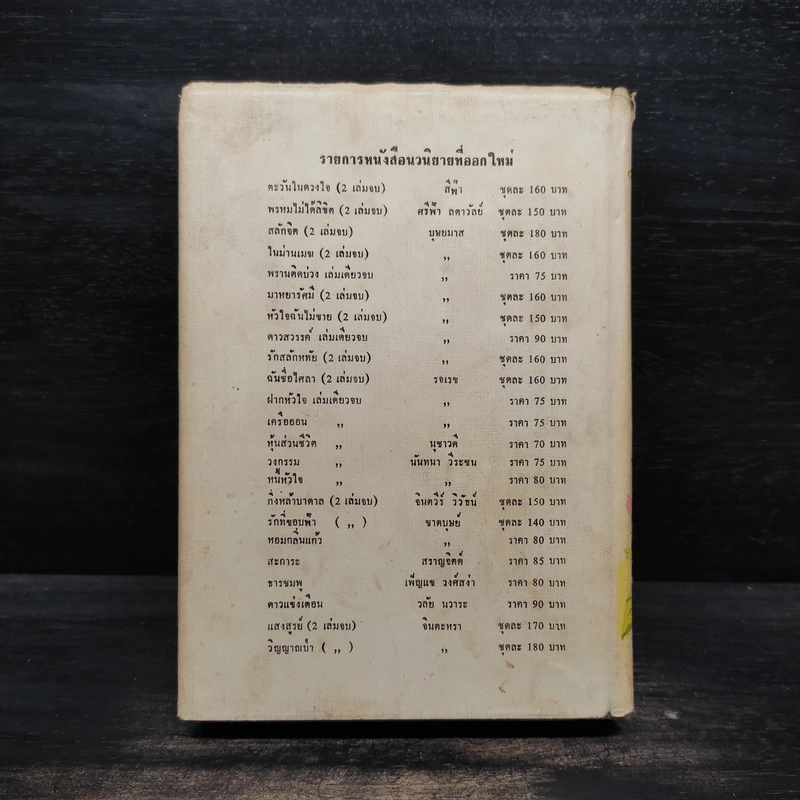 รายการหนังสือนวนิยายที่ออกใหม่
ตะวันในดวงใจ (2 เล่มจบ) สีฟ้า ชุดละ 160 บาท
พรหมไม่ได้ลิขิต (2 เล่มจบ) ศรีฟ้า ลดาวัลย์ ชุดละ 150 บาท
สลักจิต (2 เล่มจบ) บุษยมาส ชุดละ 180 บาท
ในม่านเมฆ (2 เล่มจบ) ,, ชุดละ 160 บาท
พรานติดบ่วง เล่มเดียวจบ ,, ราคา 75 บาท
มาหยารัศมี (2 เล่มจบ) ,, ชุดละ 160 บาท
หัวใจฉันไม่ขาย (2 เล่มจบ) ,, ชุดละ 150 บาท
ดาวสวรรค์ เล่มเดียวจบ ,, ราคา 90 บาท
รักสลักหทัย (2 เล่มจบ) ,, ชุดละ 160 บาท
ฉันชื่อไศลา (2 เล่มจบ) รจเรข ชุดละ 160 บาท
ฝากหัวใจ เล่มเดียวจบ ,, ราคา 75 บาท
เครือออน ,, ,, ราคา 75 บาท
หุ้นส่วนชีวิต ,, นุชาวดี ราคา 70 บาท
วงกรรม ,, นันทนา วีระชน ราคา 75 บาท
หนี้หัวใจ ,, ,, ราคา 80 บาท
กิ่งหล้าบาดาล (2 เล่มจบ) จินตวีร์ วิวัธน์ ชุดละ 150 บาท
รักที่ขอบฟ้า ( ,, ) ชาตบุษย์ ชุดละ 140 บาท
หอมกลิ่นแก้ว ,, ราคา 80 บาท
สะการะ สราญจิตต์ ราคา 85 บาท
ธารชมพู เพ็ญแข วงศ์สง่า ราคา 80 บาท
ดาวแข่งเดือน วลัย นวาระ ราคา 90 บาท
แสงสูรย์ (2 เล่มจบ) จินตะหรา ชุดละ 170 บาท
วิญญาณเบ้า ( ,, ) ,, ชุดละ 180 บาท